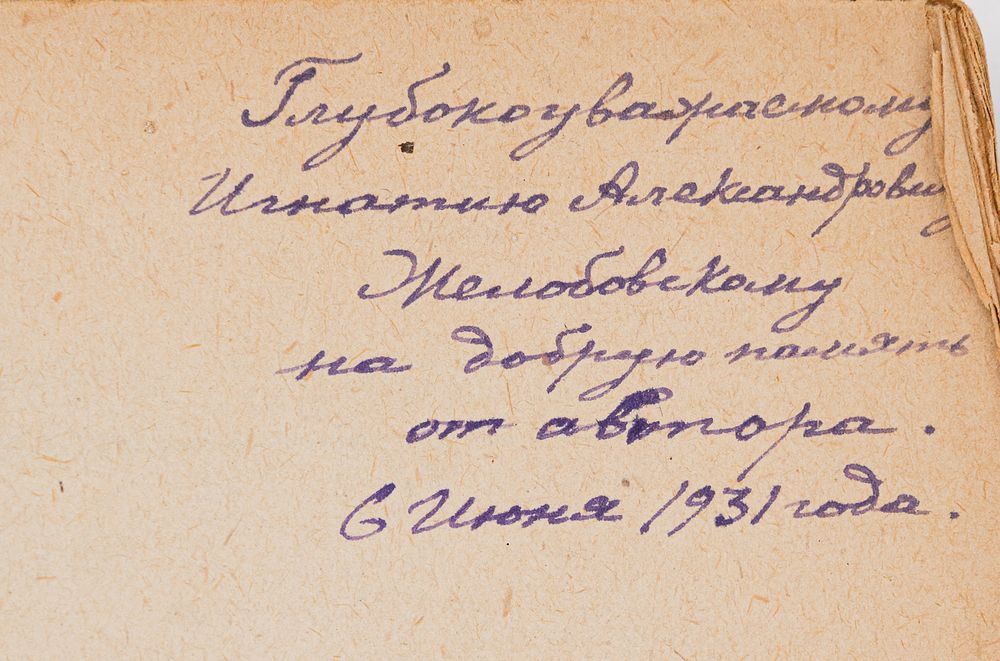 Глубокоуважаемому
Игнатию Александрович
Желобовскому
на добрую память
от автора.
6 Июня 1931 года.